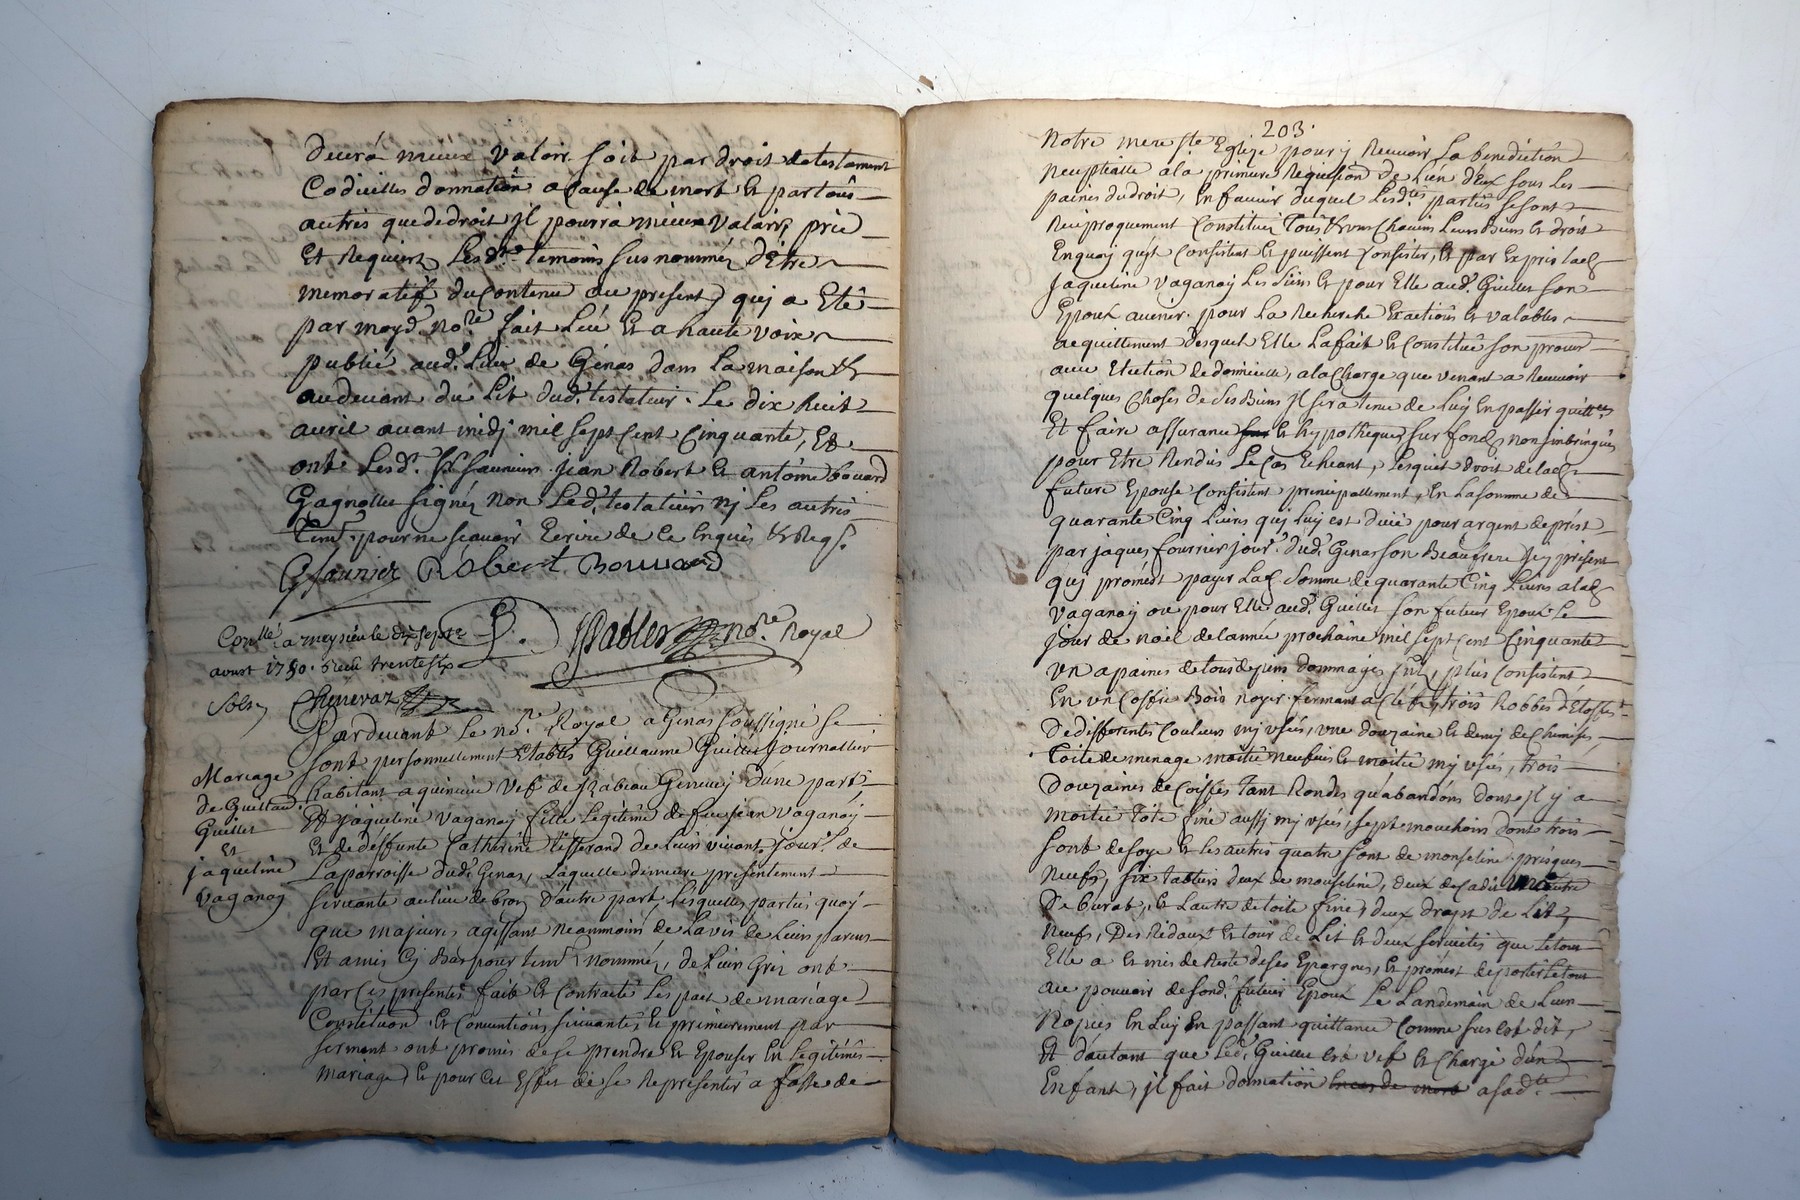 devra mieux valoir soit par droit de testament
Codicilles donnation a Cause de mort et par tous
autres que de droit jl pourra mieux valoir, prie
Et Requiert Lesdts temoins sus nommés d'Etre
memoratif du Contenu au present qui a Eté
par moyd. nore fait Leu Et a haute voix
publié aud. Lieu de Génas dans La maison &
audevant du Lit dud. testateur. Le dix huit
avril avant midj mil sept Cent Cinquante, Et
ont Lesd. Sr saunier jean Robert Et antoine bouvard
Gagnolle signés non Led. testateur nj Les autres
tem. pour ne sçavoir Ecrire de Ce Enquis & Reqs.
Gsaunier Robert Bouvard
Conllé a meysieu le dix sept
aoust 1750. Receu trente six
sols Chenevaz
Pabler nore Royal
Pardevant Le nore Royal a Genas soussigné se
sont personnellement Etablis Guillaume Guillet journallier
habitant a quincieu Vef de Rabeau Genevej d'une part,
Et jaqueline vaganay fille Legitime de feu jean vaganay
Et de deffunte Catherine tisserand de Leurs vivant jour. de
Laparroisse dud. Genas, Laquelle demeure presentement
servante au lieu de bron d'autre part, Lesquelles parties quoy
que majeures agissant neanmoins de Lavis de Leurs parens
Et amis Cj Bas pour tem. nommés, de Leur Gréz ont
par Ces presentes fait Et Contracté Les pact de mariage
Constitution Et Conventions suivantes Et premierement par
serment ont promis de se prendre Et Epouser En Legitime
mariage Et pour Cet Effet de se Representer a fasse de
Mariage
de
Guillet
Et
jaqueline
vaganay
203.
Notre mere ste Eglize pour y Recevoir La benediction
neuptialle a la premiere Requisition de L'un d'Eux sous Les
paines du droit, En faveur duquel Lesdtes parties se sont
Reciproquement Constituer Tous & uns Chacuns Leurs Biens Et droit
Enquoy quil Consistent Et puissent Consister, Et par Expres lad.
Jaqueline vaganay Les siens Et pour Elle aud. Guillet son
Epoux avenir pour La Recherche Exactions Et valables
acquittement desquel Elle La fait Et Constitué son procur
avec Election de domicille, a la Charge que venant a Recevoir
quelques Choses de Ses Biens jl sera tenu de Luy En passer quittces
Et faire assurance Et hypotheque sur fond non
pour Etre Rendus Le Cas Echeant, Lesquel droit de lad.
future Epouse Consistent principallement, En La somme de
quarante Cinq Livres qui Luy est düe pour argent de prest
par jaques fournier jour. dud. Genas son Beaufrere jcy present
qui promést payer Lad. somme de quarante Cinq Livres a lad.
vaganay ou pour Elle aud. Guillet son futeur Epoux Le
jour de noel de lannée prochaine mil sept Cent Cinquante
un a paines de tous depens dommages plus Consistent
En un Coffre Bois noyer fermant a Clef, trois Robbes d'Etoffes
De differentes Couleurs mj usées, une douzaine Et demy de Chemises,
Toile de menage moitié neufves Et moitié mj usées, trois
Douzaines de Coiffes Tant Rondes qu'abandons dont jl y a
Moitié Toile fine aussj mj usées, sept mouchoirs dont trois
sont de soye Et les autres quatre sont de mouseline presques
neufs, six tabliers deux de mouseline, deux de Cadis
De burat, Et Lautre de toile fine, deux draps de Lit
neufs, Des Rideaux Et tour de Lit Et deux serviettes que Letout
Elle a Et mis de Reste de ses Epargnes, Et promést de porter Letout
au pouvoir de sond. futeur Epoux Le Landemain de Leur
Nopces En Luy En passant quittance Comme sus est dit,
Et d'autant que Led. Guillet Est vef Et Chargé d'un
Enfant, jl fait donnation a sadte